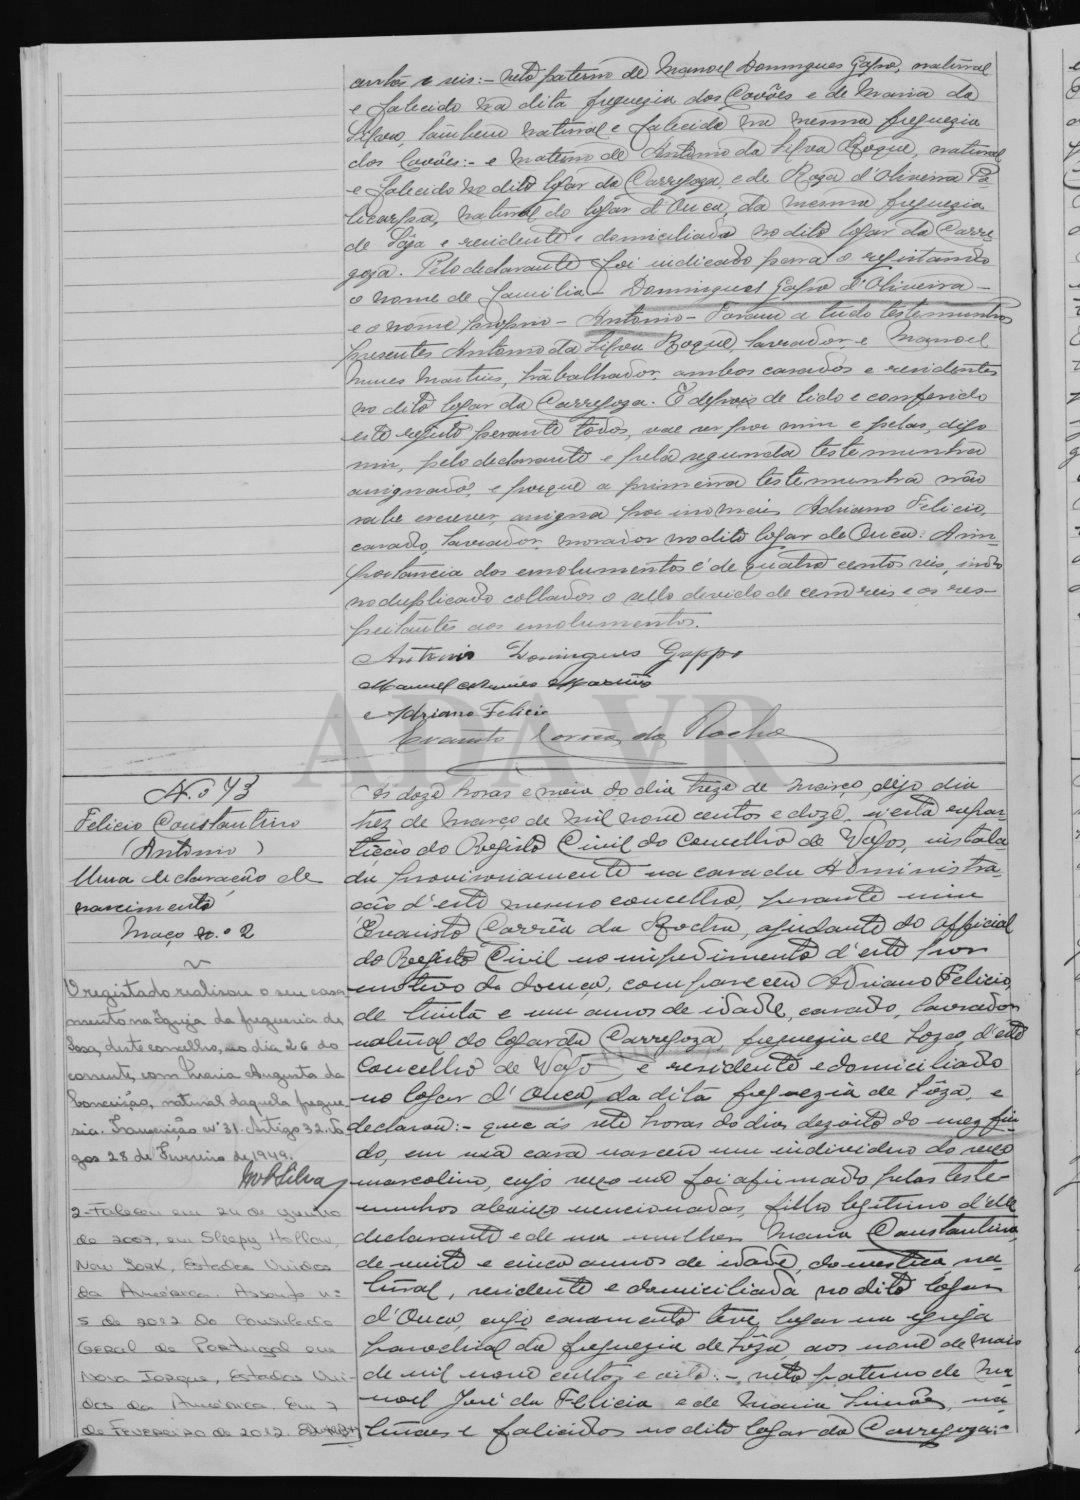 centos e seis:- neto paterno de Manoel Domingues Gapo, natural
e falecido na dita freguezia dos Covões e de Maria da
Silva, tambem natural e falecida na mesma freguezia
dos Covões:- e materno de Antonio da Silva Roque, natural
e falecido no dito logar da Carregoza, e de Roza d'Oliveira Po-
licarpa, natural do logar d'Ouca, da mesma freguezia
de Sôza e residente e domiciliada no dito logar da Carre-
goza. Pelo declarante foi indicado para o registando
o nome de familia - Domingues Gapo d'Oliveira -
e o nome proprio - Antonio - Foram a tudo testemunhas
presentes Antonio da Silva Roque, lavrador e Manoel
Nunes Martins, trabalhador, ambos casados e residentes
no dito logar da Carregoza. E depois de lido e conferido
este registo perante todos, vae ser por mim e pelas, digo
mim, pelo declarante e pela segunda testemunha
assignado, e porque a primeira testemunha não
sabe escrever, assigna por ino mais Adriano Felicio,
casado, lavrador, morador no dito logar de Ouca: A im-
portancia dos emolumentos é de quatro centos reis, indo
no duplicado collados o sello devido de cem reis e os res-
peitantes aos emolumentos.
Antonio Domingues Gappo
Manuel Nunes Martins
Adriano Felicio
Evaristo Corrêa da Rocha
N.º 73
Felicio Constantino
(Antonio)
Uma declaração de
nascimento
Maço n.º 2
O registado realisou o seu casa-
mento na Igreja da freguesia de
Sosa, deste concelho, no dia 26 do
corrente, com Maria Augusta da
Conceição, natural daquela fregue-
sia. Transcrição nº 31. Artigo 32. Va-
gos 28 de Fevereiro de 1949.
MSilva
2-Faleceu em 24 de junho
de 2007, em Sleepy Hollow,
New York, Estados Unidos
da América. Assento nº
5 de 2012 do Consulado
Geral de Portugal em
Nova Iorque, Estados Uni-
dos da América. Em 7
de Fevereiro de 2012.
Ás doze horas e meia do dia treze de março, digo dia
trez de Março de mil nove centos e doze, n'esta repar-
tição do Registo Civil do concelho de Vagos, instala-
da provisoriamente na casa da Administra-
ção d'este mesmo concelho, perante mim
Evaristo Corrêa da Rocha, ajudante do official
do Registo Civil no impedimento d'este por
motivo de doença, compareceu Adriano Felicio,
de trinta e um annos de idade, casado, lavrador
natural do logar da Carregoza, freguezia de Soza, d'este
concelho de Vagos e residente e domiciliado
no logar d'Ouca, da dita freguezia de Sôza, e
declarou:- que ás sete horas do dia dezoito do mez fin-
do, em sua casa nasceu um individuo do sexo
masculino, cujo sexo me foi afirmado pelas teste-
munhas abaixo mencionadas, filho legitimo d'ele
declarante e de sua mulher Maria Constantina,
de vinte e cinco annos de idade, domestica, na-
tural, residente e domiciliada no dito logar
d'Ouca, cujo casamento teve logar na egreja
parochial da freguezia de Sôza aos nove de maio
de mil nove centos e oito:-, neto paterno de Ma-
noel José da Felicia e de Maria Simões, na-
turaes e falicidos no dito logar da Carregoza:-
ADAVR